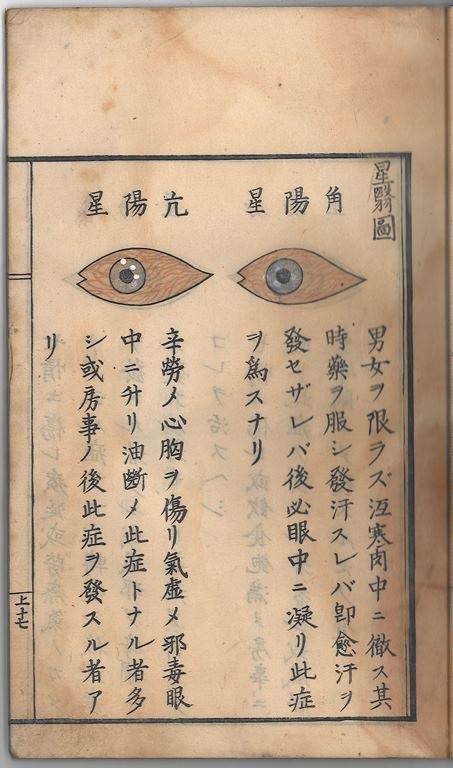 星翳圖
角陽星
男女ヲ限ラズ冱寒肉中ニ徹ス其
時藥ヲ服シ發汗スレバ卽愈汗ヲ
發セザレバ後必眼中ニ凝リ此症
ヲ爲スナリ
亢陽星
辛勞メ心胸ヲ傷リ氣虚メ邪毒眼
中ニ升リ油斷メ此症トナル者多
シ或房事ノ後此症ヲ發スル者ア
リ
上十七